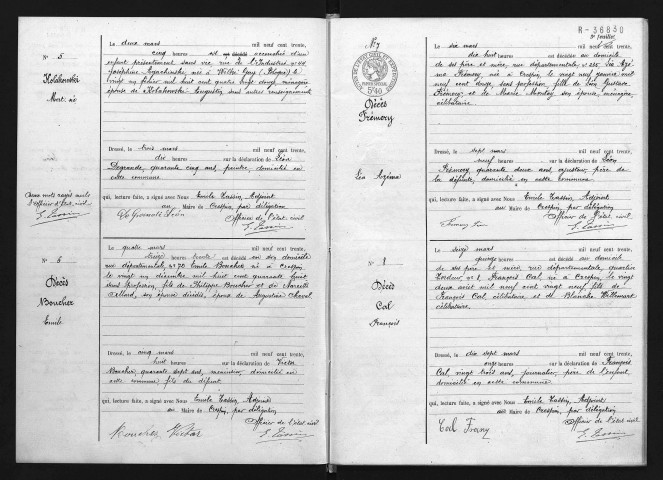 N° 5
Kolakowski
Mort-né
Deux mots rayés nuls
l'officier d'état civil
E. Tassin
Le deux mars mil neuf cent trente,
cinq heures est accouchée d'un
enfant présentement sans vie, rue de l'Industrie n° 44
Joséphine née à (Pologne) le
mil huit cent quatre vingt douze, ménagère
épouse de Kolakowski Augustin sans autres renseignements
Dressé, le trois mars mil neuf cent trente,
dix heures sur la déclaration de Léon
Degrande, quarante cinq ans, peintre, domicilié en
cette commune
qui, lecture faite, a signé avec Nous Emile Tassin, Adjoint
au Maire de Crespin, par délégation
Officier de l'état civil
E. Tassin
N° 6
Décès
Boucher
Emile
Le quatre mars mil neuf cent trente,
seize heures trente est décédé en son domicile
rue départementale, n° 70 Emile Boucher né à Crespin,
le vingt un décembre mil huit cent quarante huit
sans profession, fils de Philippe Boucher et de
son épouse décédés, époux de Augustine Cheval
Dressé, le cinq mars mil neuf cent trente,
huit heures sur la déclaration de Victor
Boucher, quarante sept ans, domicilié en
cette commune fils du défunt
qui, lecture faite, a signé avec Nous Emile Tassin, Adjoint
au Maire de Crespin, par délégation
Officier de l'état civil
Boucher Victor
E. Tassin
R-36830
3e feuillet
N° 7
Décès
Frémery
Léa Azéma
Le six mars mil neuf cent trente,
dix huit heures est décédée au domicile
de ses père et mère, rue départementale, n° 235 Léa Azé-
ma Frémery née à Crespin, le vingt neuf janvier mil
neuf cent douze sans profession, fille de Léon Gustave
Frémery et de Marie Montay son épouse, ménagère,
célibataire
Dressé, le sept mars mil neuf cent trente,
neuf heures sur la déclaration de Léon
Frémery quarante deux ans, ajusteur, père de
la défunte, domicilié en cette commune
qui, lecture faite, a signé avec Nous Emile Tassin, Adjoint
au Maire de Crespin, par délégation
Officier de l'état civil
E. Tassin
N° 8
Décès
Col
François
Le seize mars mil neuf cent trente,
quinze heures est décédé au domicile
de ses père et mère, rue départementale, quartier
n° 1, François Col, né à Crespin, le vingt
deux août mil neuf cent vingt neuf fils de
François Col, célibataire et de Blanche Willemart
célibataire,
Dressé, le dix sept mars mil neuf cent trente,
onze heures sur la déclaration de François
Col vingt trois ans, journalier, père de l'enfant
domicilié en cette commune
qui, lecture faite, a signé avec Nous Emile Tassin, Adjoint
au Maire de Crespin, par délégation
Officier de l'état civil
E. Tassin